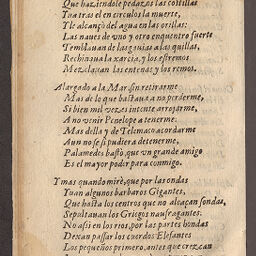 Que haziendole pedazos las costillas
Tua tras el en circulos la muerte,
Y le alcançò del agua en las orillas:
Las naues de vno y otro enquentro fuerte
Temblauan de las guias a las quillas,
Rechinaua la xarcia, y los estremos
Mezclauan las entenas y los remos.
Alargado a la Mar sin retirarme
Mas de lo que bastaua a no perderme,
Si bien mil vezes intente arrojarme,
A no venir Penelope a tenerme:
Mas della y de Telemaco acordarme
Aun no se si pudiera detenerme,
Palamedes bastò, que vn grande amigo
Es el mayor poder para conmigo.
Y mas quando mirè, que por las ondas
Yuan algunos barbaros Gigantes,
Que hasta los centros que no alcançan sondas,
Sepultauan los Griegos naufragantes:
No assi en los rios, por las partes hondas
Dexan passar los cuerdos Elefantes
Los pequeños primero, antes que crezcan